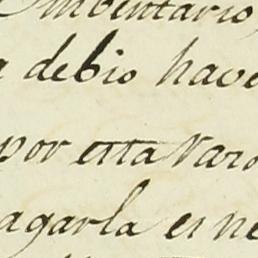 Imbentario,
a debio have
por esta Razo
agarla es ne